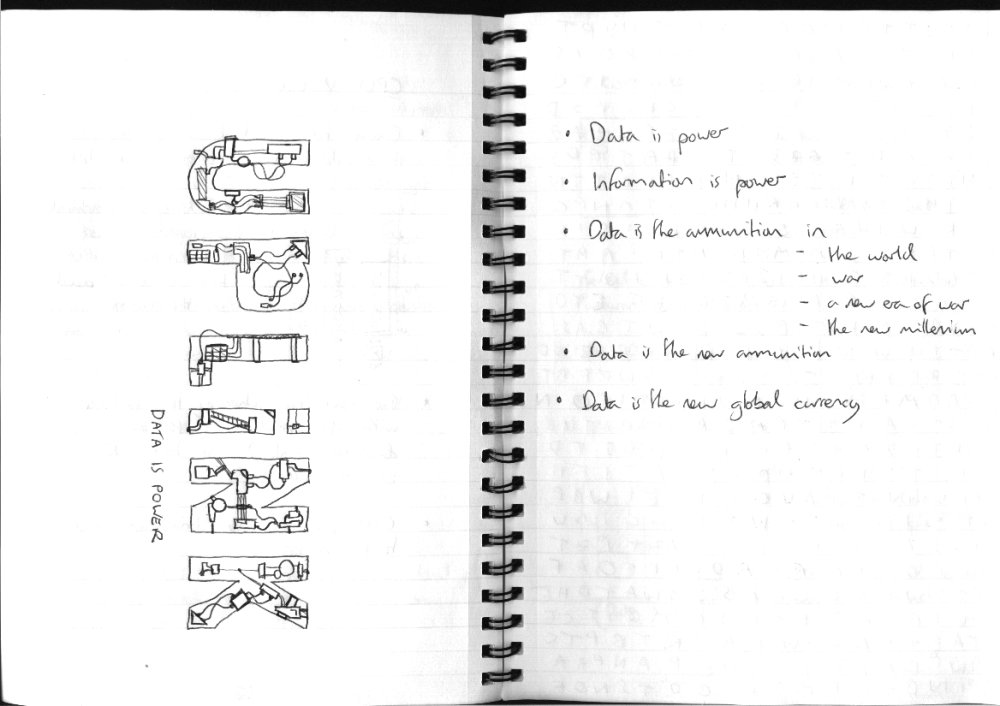 UPLiNK
DATA IS POWER
• Data is power
• Information is power
• Data is the ammunition in
- the world
- war
- a new era of war
- the new millenium
• Data is the new ammunition
• Data is the new global currency